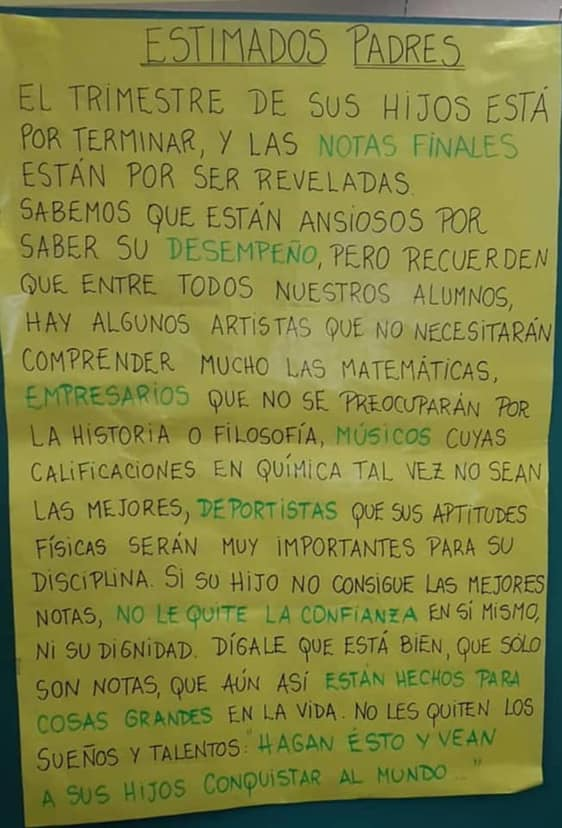 ESTIMADOS PADRES
EL TRIMESTRE DE SUS HIJOS ESTÁ
POR TERMINAR, Y LAS NOTAS FINALES
ESTÁN POR SER REVELADAS.
SABEMOS QUE ESTÁN ANSIOSOS POR
SABER SU DESEMPEÑO, PERO RECUERDEN
QUE ENTRE TODOS NUESTROS ALUMNOS,
HAY ALGUNOS ARTISTAS QUE NO NECESITARÁN
COMPRENDER MUCHO LAS MATEMÁTICAS,
EMPRESARIOS QUE NO SE PREOCUPARÁN POR
LA HISTORIA O FILOSOFÍA, MÚSICOS CUYAS
CALIFICACIONES EN QUÍMICA TAL VEZ NO SEAN
LAS MEJORES, DEPORTISTAS QUE SUS APTITUDES
FÍSICAS SERÁN MUY IMPORTANTES PARA SU
DISCIPLINA. SI SU HIJO NO CONSIGUE LAS MEJORES
NOTAS, NO LE QUITE LA CONFIANZA EN SÍ MISMO,
NI SU DIGNIDAD. DÍGALE QUE ESTÁ BIEN, QUE SÓLO
SON NOTAS, QUE AÚN ASÍ ESTÁN HECHOS PARA
COSAS GRANDES EN LA VIDA. NO LES QUITEN LOS
SUEÑOS Y TALENTOS: "HAGAN ÉSTO Y VEAN
A SUS HIJOS CONQUISTAR AL MUNDO..."